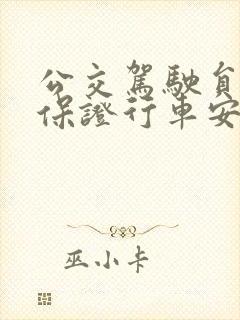 公交駕駛員
保證行車安
巫小卡